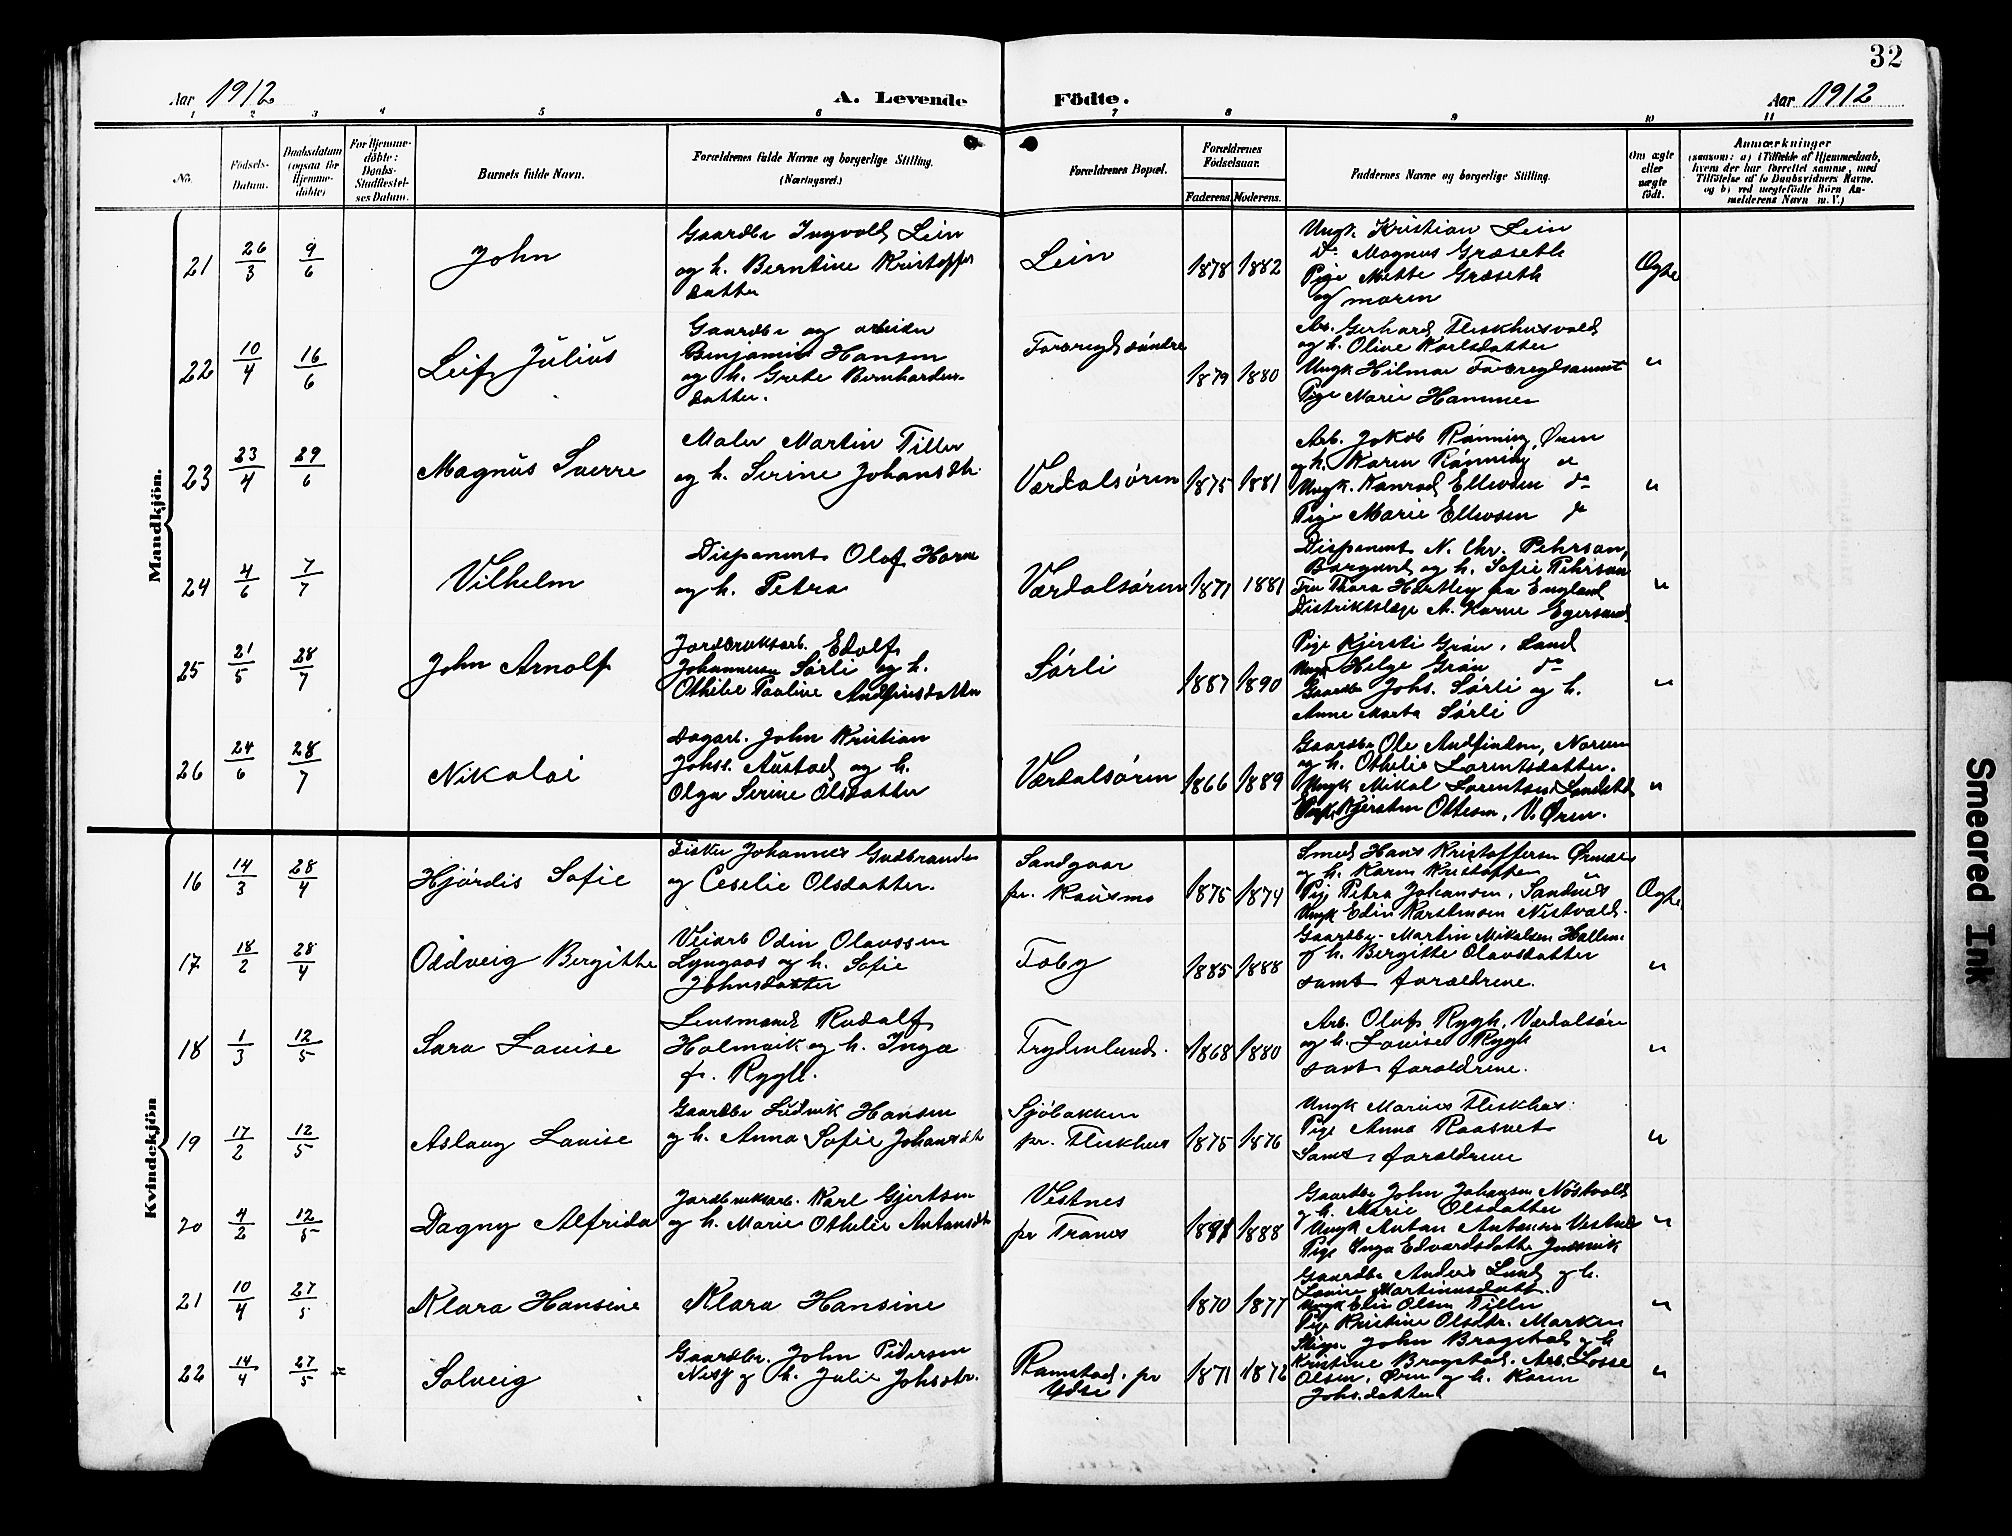 32
Aar 1912
A. Levende Födte.
Aar 1912
1 2 3 4 5 6 7 8 9 10 11
No.
Födsels-Datum.
Daabsdatum (ogsaa for Hjemme-döbte)
For Hjemme-döbte: Daabs-Stadfæstel-ses Datum.
Barnets fulde Navn.
Forældrenes fulde Navne og borgerlige Stilling.
(Næringsvei.)
Forældrenes Bopæl.
Forældrenes Födselsaar.
Faderens. Moderens.
Faddernes Navne og borgerlige Stilling.
Om ægte eller uægte födt.
Anmærkninger
(saasom: a) i Tilfælde af Hjemmedaab, hvem der har forrettet samme, med Tilföielse af to Daabsvidners Navne. og b) ved uægtefödte Börn An-melderens Navn m. V.)
Mandkjön.
21 26/3 9/6 John
Gaardbr Ingvald Lein
og h. Berntine Kristoffer
datter
Lein 1878 1882
Ungk. Kristian Lein
Do Magnus Græseth
Pige Mette Græseth
og moren
Ægte
22 10/4 16/6 Leif Julius
Gaardbr og arbeider
Benjamin Hansen
og h. Grete Bernhardus-
datter.
1879 1880
Arb. Gerhard Fleskhusvald
og h. Olive Karlsdatter
Ungk Hilmar
Pige Marie Hammer
"
23 23/4 29/6 Magnus Sverre
Maler Martin Tiller
og h. Serine Johansdtr.
Værdalsøren 1875 1881
Arb. Jakob Rønning, Øren
og h. Karen Rønning "
Ungk. Konrad Ellevsen do
Pige Marie Ellevsen do
"
24 4/6 7/7 Vilhelm
Disponent Olaf Havn
og h. Petra
Værdalsøren 1871 1881
Disponent N. Chr. Pehrson,
Borgund og h. Sofie Pehrson
Fru Thora Hartley fra England
Distriktslæge A. Egersund
"
25 21/5 28/7 John Arnolf
Jordbruksarb. Edolf
Johannesen Sørli og h.
Othilie Pauline Andfinsdatter
Sørli 1887 1890
Pige Kjersti Grøn, Land
Ungk Helge Grøn do
Gaardbr Johs. Sørli og h.
Anne Marta Sørli
"
26 24/6 28/7 Nikolai
Dagarb. John Kristian
Johs. Austad og h.
Olga Serine Olsdatter
Værdalsøren 1866 1889
Gaardbr Ole Andfindsen,
og h. Othelie Lorentsdatter.
Ungk Mikal Lorentsen
Kjersten Ottesen, V. Øren.
"
Kvindekjön
16 14/3 28/4 Hjördis Sofie
Fisker Johannes Gudbrandsen
og Ceselie Olsdatter.
Sandgaar
pr. Rausmo 1875 1874
Smed Hans Kristoffersen
og h. Karen Kristoffersen
Pige Petra Johansen, Sandnes
Ungk Edin Karstensen Nestvald.
Ægte
17 18/2 28/4 Oddveig Bergitte
Veiarb Odin Olaussen
Lyngaas og h. Sofie
Johnsdatter
Foby 1885 1888
Gaardbr Martin Mikalsen Hallem
og h. Bergitte Olavsdatter
samt forældrene.
"
18 1/3 12/5 Sara Louise
Lensmand Rudolf
Holmvik og h. Inga
f. Rygh.
Frydenlund. 1868 1880
Arb. Oluf Rygh, Værdalsøre
og h. Louise Rygh
samt forældrene.
"
19 17/2 12/5 Aslaug Louise
Gaardbr Ludvik Hansen
og h. Anna Sofie Johansdtr
Sjöbakken
pr. Fleskhus 1875 1876
Ungk Marius Fleskhus
Pige Anna
Samt forældrene
"
20 4/2 12/5 Dagny Alfrida
Jordbruksarb. Karl Gjertsen
og h. Marie Othelie Antonsdtr
Vestnes
pr Trones 1888
Gaardbr John Johansen
og h. Marie Olsdatter
Ungk Anton Antonsen Vestnes
Pige Inga Edvardsdatter
"
21 10/4 27/5 Klara Hansine
Klara Hansine
1870 1877
Gaardbr Anders Lund og h.
Louise Martinusdatt.
Ungk Elis Olsen Tiller
Pige Kristine Olsdtr. Marken
"
22 14/4 27/5 = Solveig
Gaardbr. John Pedersen
og h. Julie Johsdtr.
Ramstad, pr
Ydse 1871 1872
John Bragstad og h
Kristine Bragstad. Arb. Losse
Olsen, Øren og h. Karen
Johs.datter
"
Smeared Ink